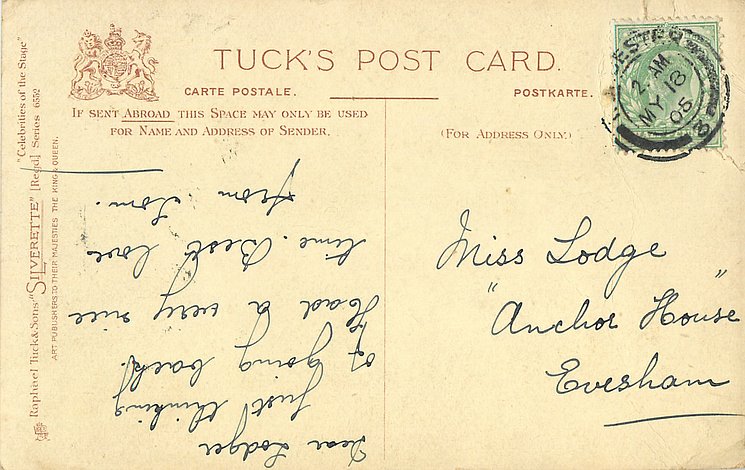 TUCK'S POST CARD.
CARTE POSTALE.
POSTKARTE.
IF SENT ABROAD THIS SPACE MAY ONLY BE USED
FOR NAME AND ADDRESS OF SENDER.
(FOR ADDRESS ONLY.)
"Celebrities of the Stage"
Raphael Tuck & Sons' "SILVERETTE" [Regd.] Series 6552
ART PUBLISHERS TO THEIR MAJESTIES THE KING & QUEEN.
2 AM
MY 18
05
Miss Lodge
"Anchor House"
Evesham
Dear Lodger
Just thinking
of going back.
Had a very nice
time. Best love
from Tom.